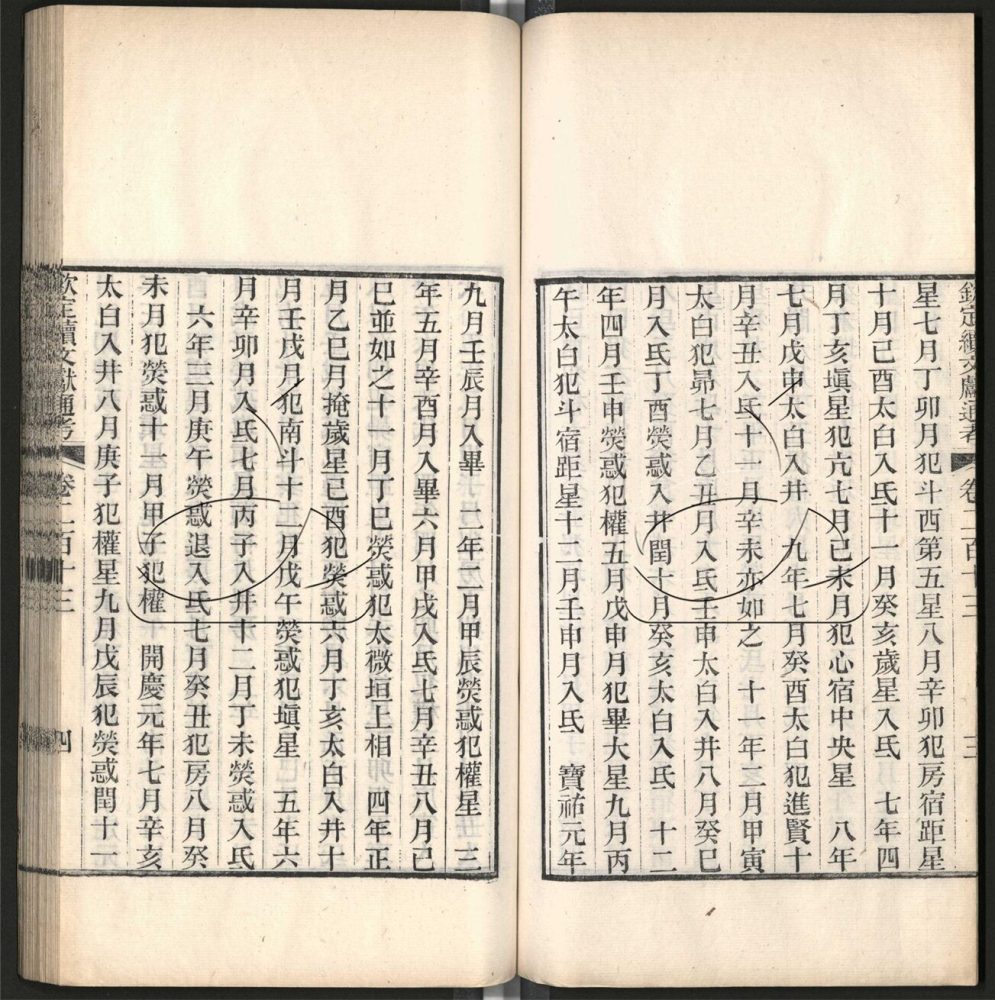 欽定續文獻通考 卷二百十三 三
星七月丁卯月犯斗西第五星八月辛卯犯房宿距星
十月己酉太白入氐十一月癸亥歲星入氐 七年四
月丁亥塡星犯亢七月己未月犯心宿中央星 八年
七月戊申太白入井 九年七月癸酉太白犯進賢十
月辛丑入氐十一月辛未亦如之 十一年三月甲寅
太白犯昴七月乙丑月入氐壬申太白入井八月癸巳
月入氐丁酉熒惑入井閏十月癸亥太白入氐 十二
年四月壬申熒惑犯權五月戊申月犯畢大星九月丙
午太白犯斗宿距星十二月壬申月入氐 寶祐元年
九月壬辰月入畢 二年二月甲辰熒惑犯權星 三
年五月辛酉月入畢六月甲戌入氐七月辛丑八月已
巳並如之十一月丁巳熒惑犯太微垣上相 四年正
月乙巳月掩歲星已酉犯熒惑六月丁亥太白入井十
月壬戌月犯南斗十二月戊午熒惑犯塡星 五年六
月辛卯月入氐七月丙子入井十二月丁未熒惑入氐
六年三月庚午熒惑退入氐七月癸丑犯房八月癸
未月犯熒惑十一月甲子犯權 開慶元年七月辛亥
太白入井八月庚子犯權星九月戊辰犯熒惑閏十一
欽定續文獻通考 卷二百十三 四